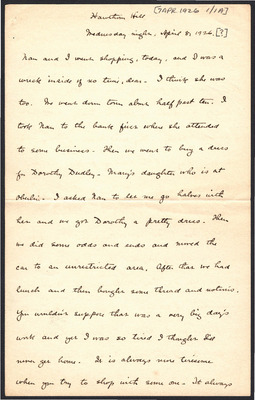 [7APR1926 1/1A]
Hawthorn Hill
Wednesday night, April 8, 1926.[?]
Nan and I went shopping, today, and I was a
wreck inside of no time, dear. I think she was
too. We went down town about half past ten. I
took Nan to the bank first where she attended
to some business. Then we went to buy a dress
for Dorothy Dudley - Mary's daughter who is at
Oberlin. I asked Nan to let me go halves with
her and we got Dorothy a pretty dress. Then
we did some odds and ends and moved the
car to an unrestricted area. After that we had
lunch and then bought some thread and notions.
You wouldn't suppose that was a very big day's
work and yet I was so tired I thought I'd
never get home. It is always more tiresome
when you try to shop with some one. It always